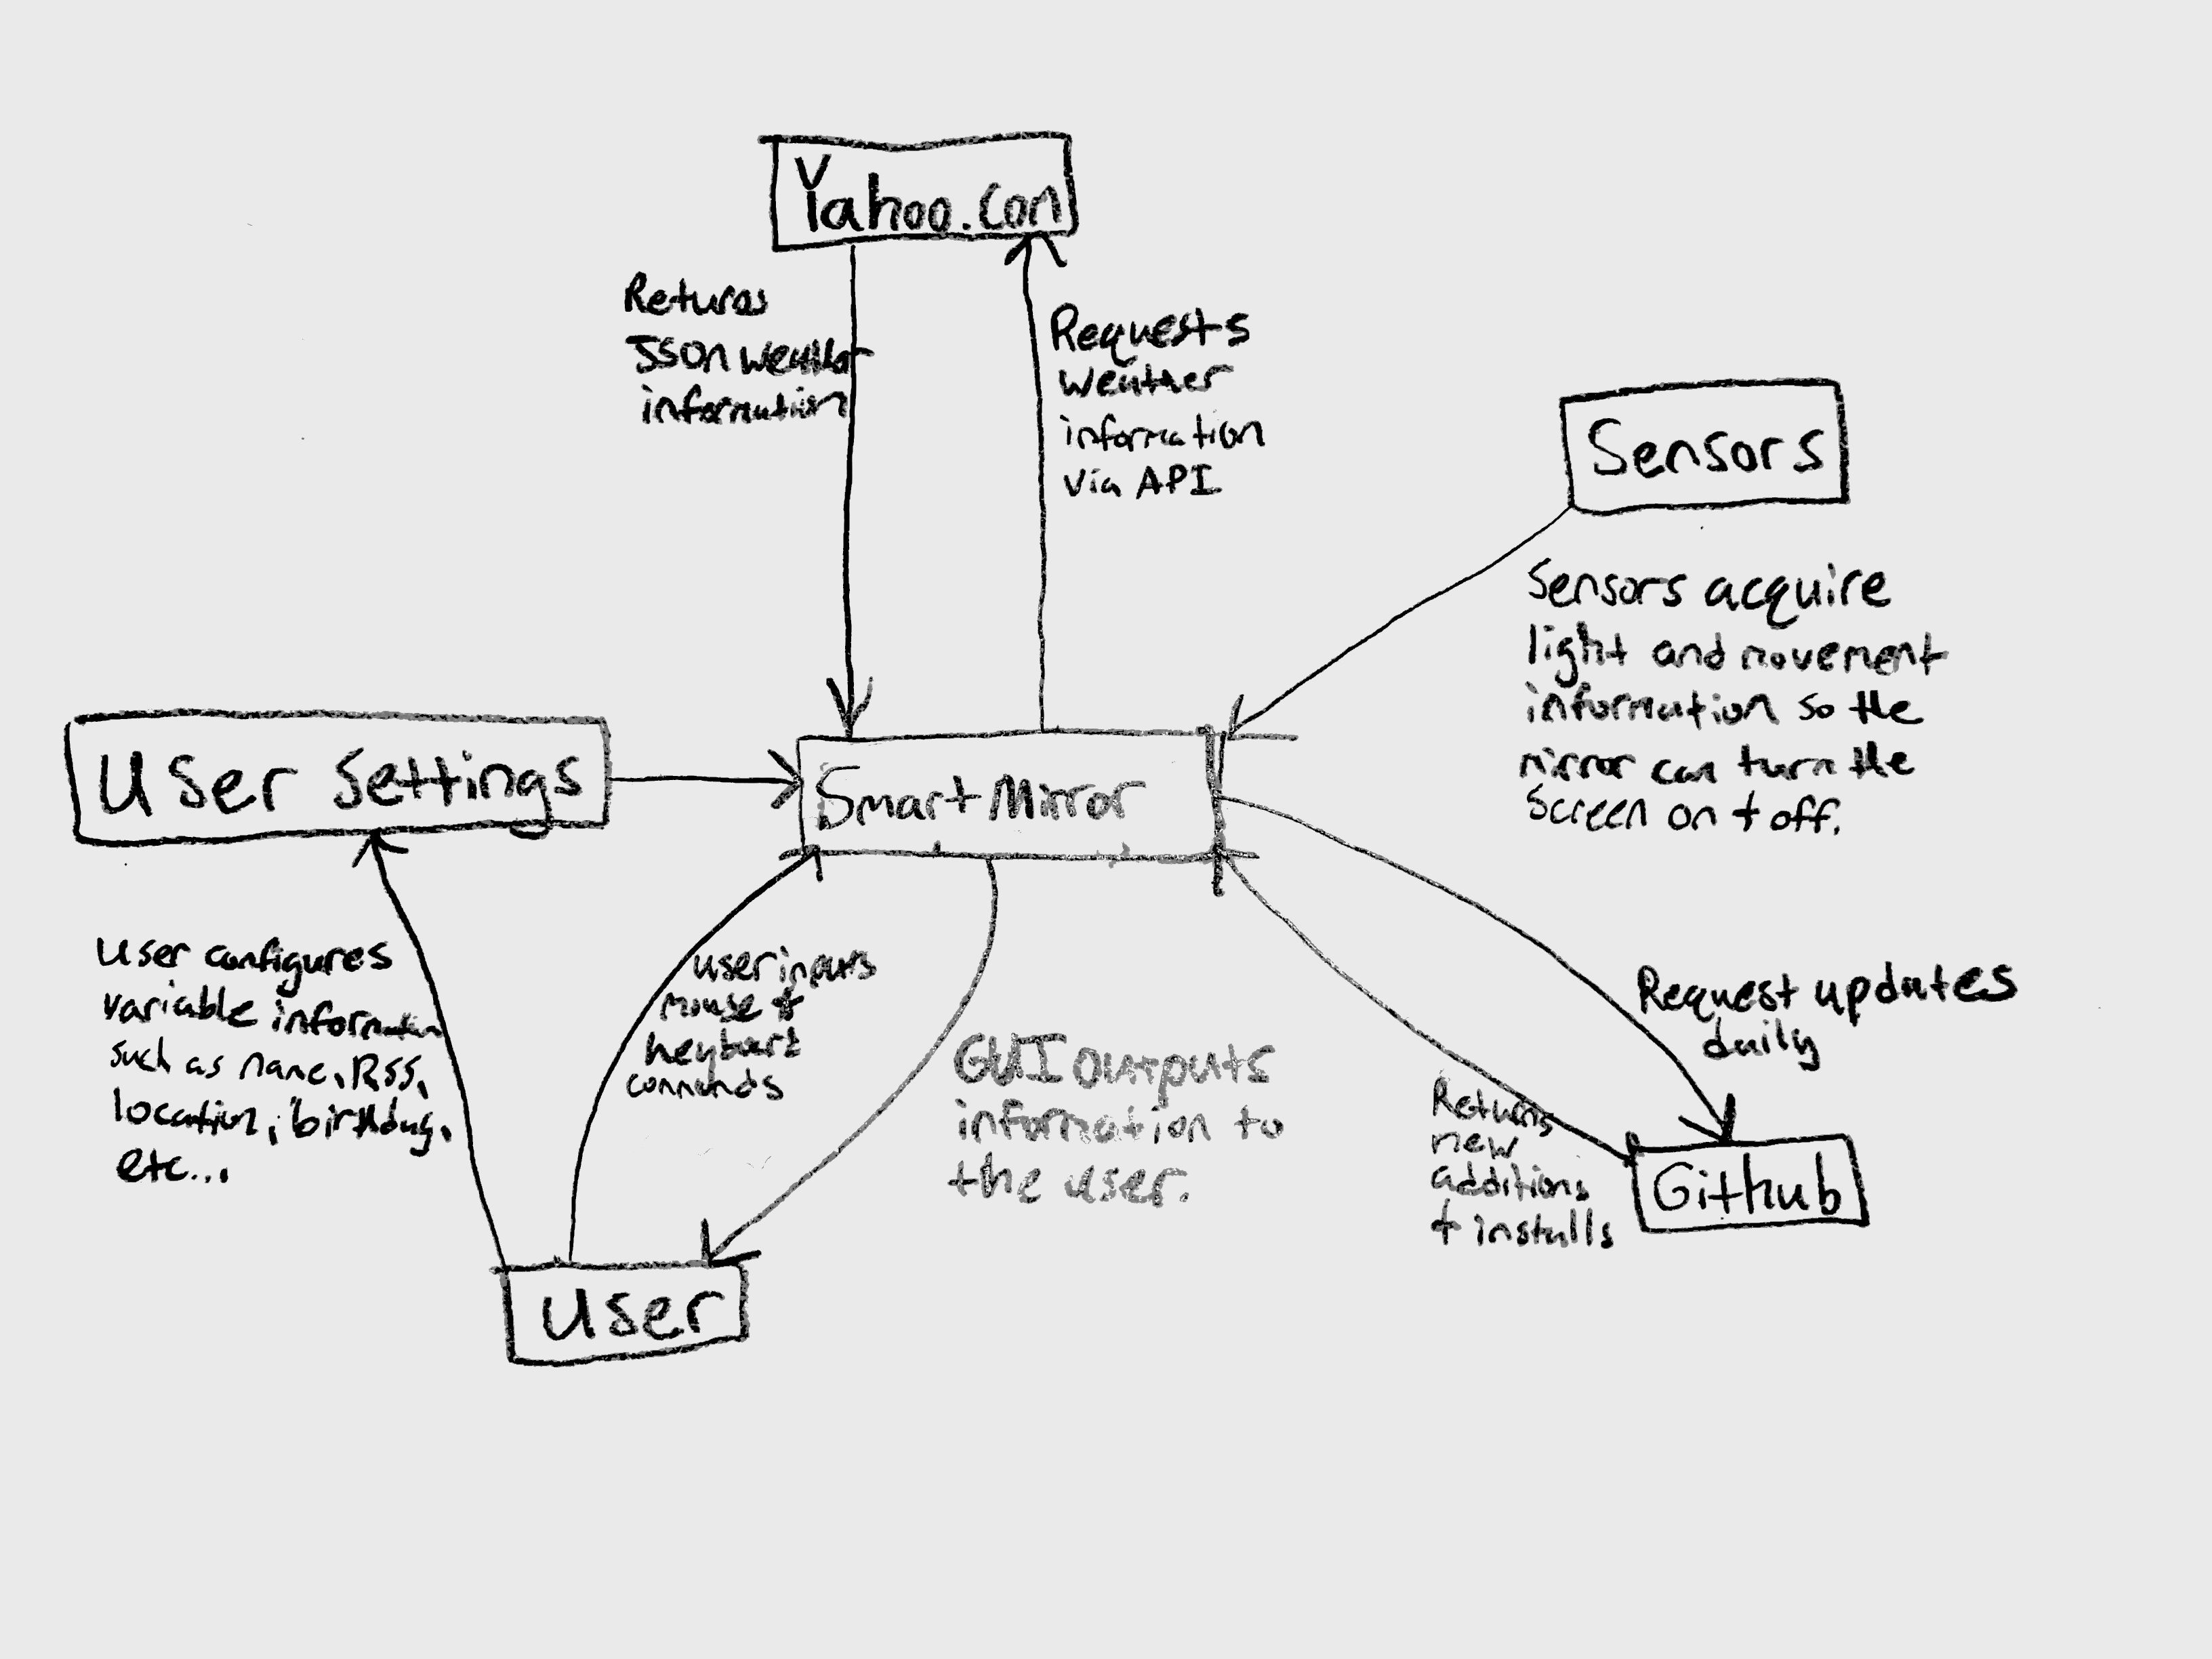 Yahoo.com
Returns
JSON weather
information
Requests
weather
information
via API
Sensors
Sensors acquire
light and movement
information so the
mirror can turn the
screen on + off.
User Settings
Smart Mirror
User configures
variable information
such as name, RSS,
location, birthday,
etc...
user inputs
mouse +
keyboard
commands
GUI outputs
information to
the user.
Request updates
daily
Returns
new
additions
+ installs
Github
User